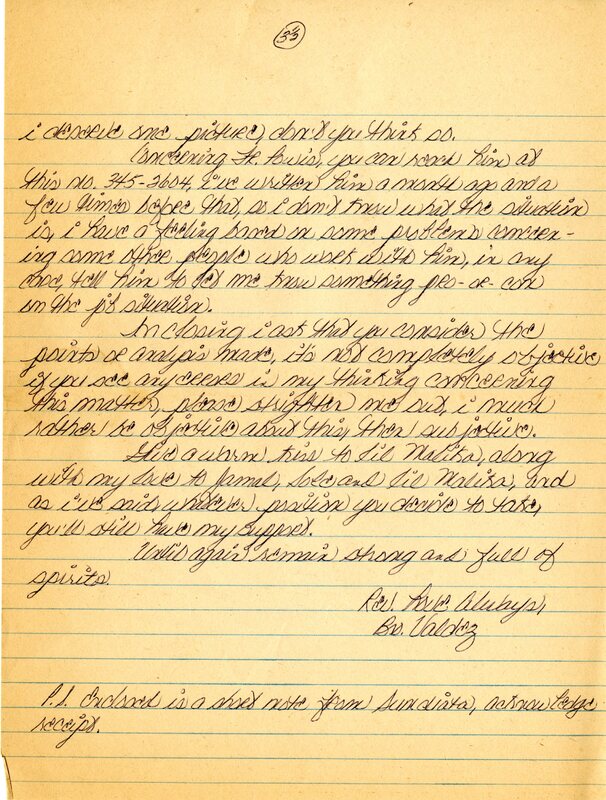 33
i deserve one picture, don't you think so.
Concerning Le Lewis, you can reach him at
this no. 345-2604, i've written him a month ago and a
few times before that, so i don't know what the situation
is, i have a feeling based on some problems concern-
ing some other people who work with him, in any
case, tell him to let me know something pro-or-con
on the job situation.
In closing i ask that you consider the
points or analysis made, it's not completely objective
if you see any errors in my thinking concerning
this matter, please strighten me out, i much
rather be objective about this, then subjective.
Give a warm kiss to lil Malika, along
with my love to Jamal, and lil Malika, and
as i've said, whatever position you decide to take,
you'll still have my support.
Until again remain strong and full of
spirits.
Rev. Love Always,
Bro. Valdez
P.S. Enclosed is a short note from Sundiata, acknowledge
receipt.